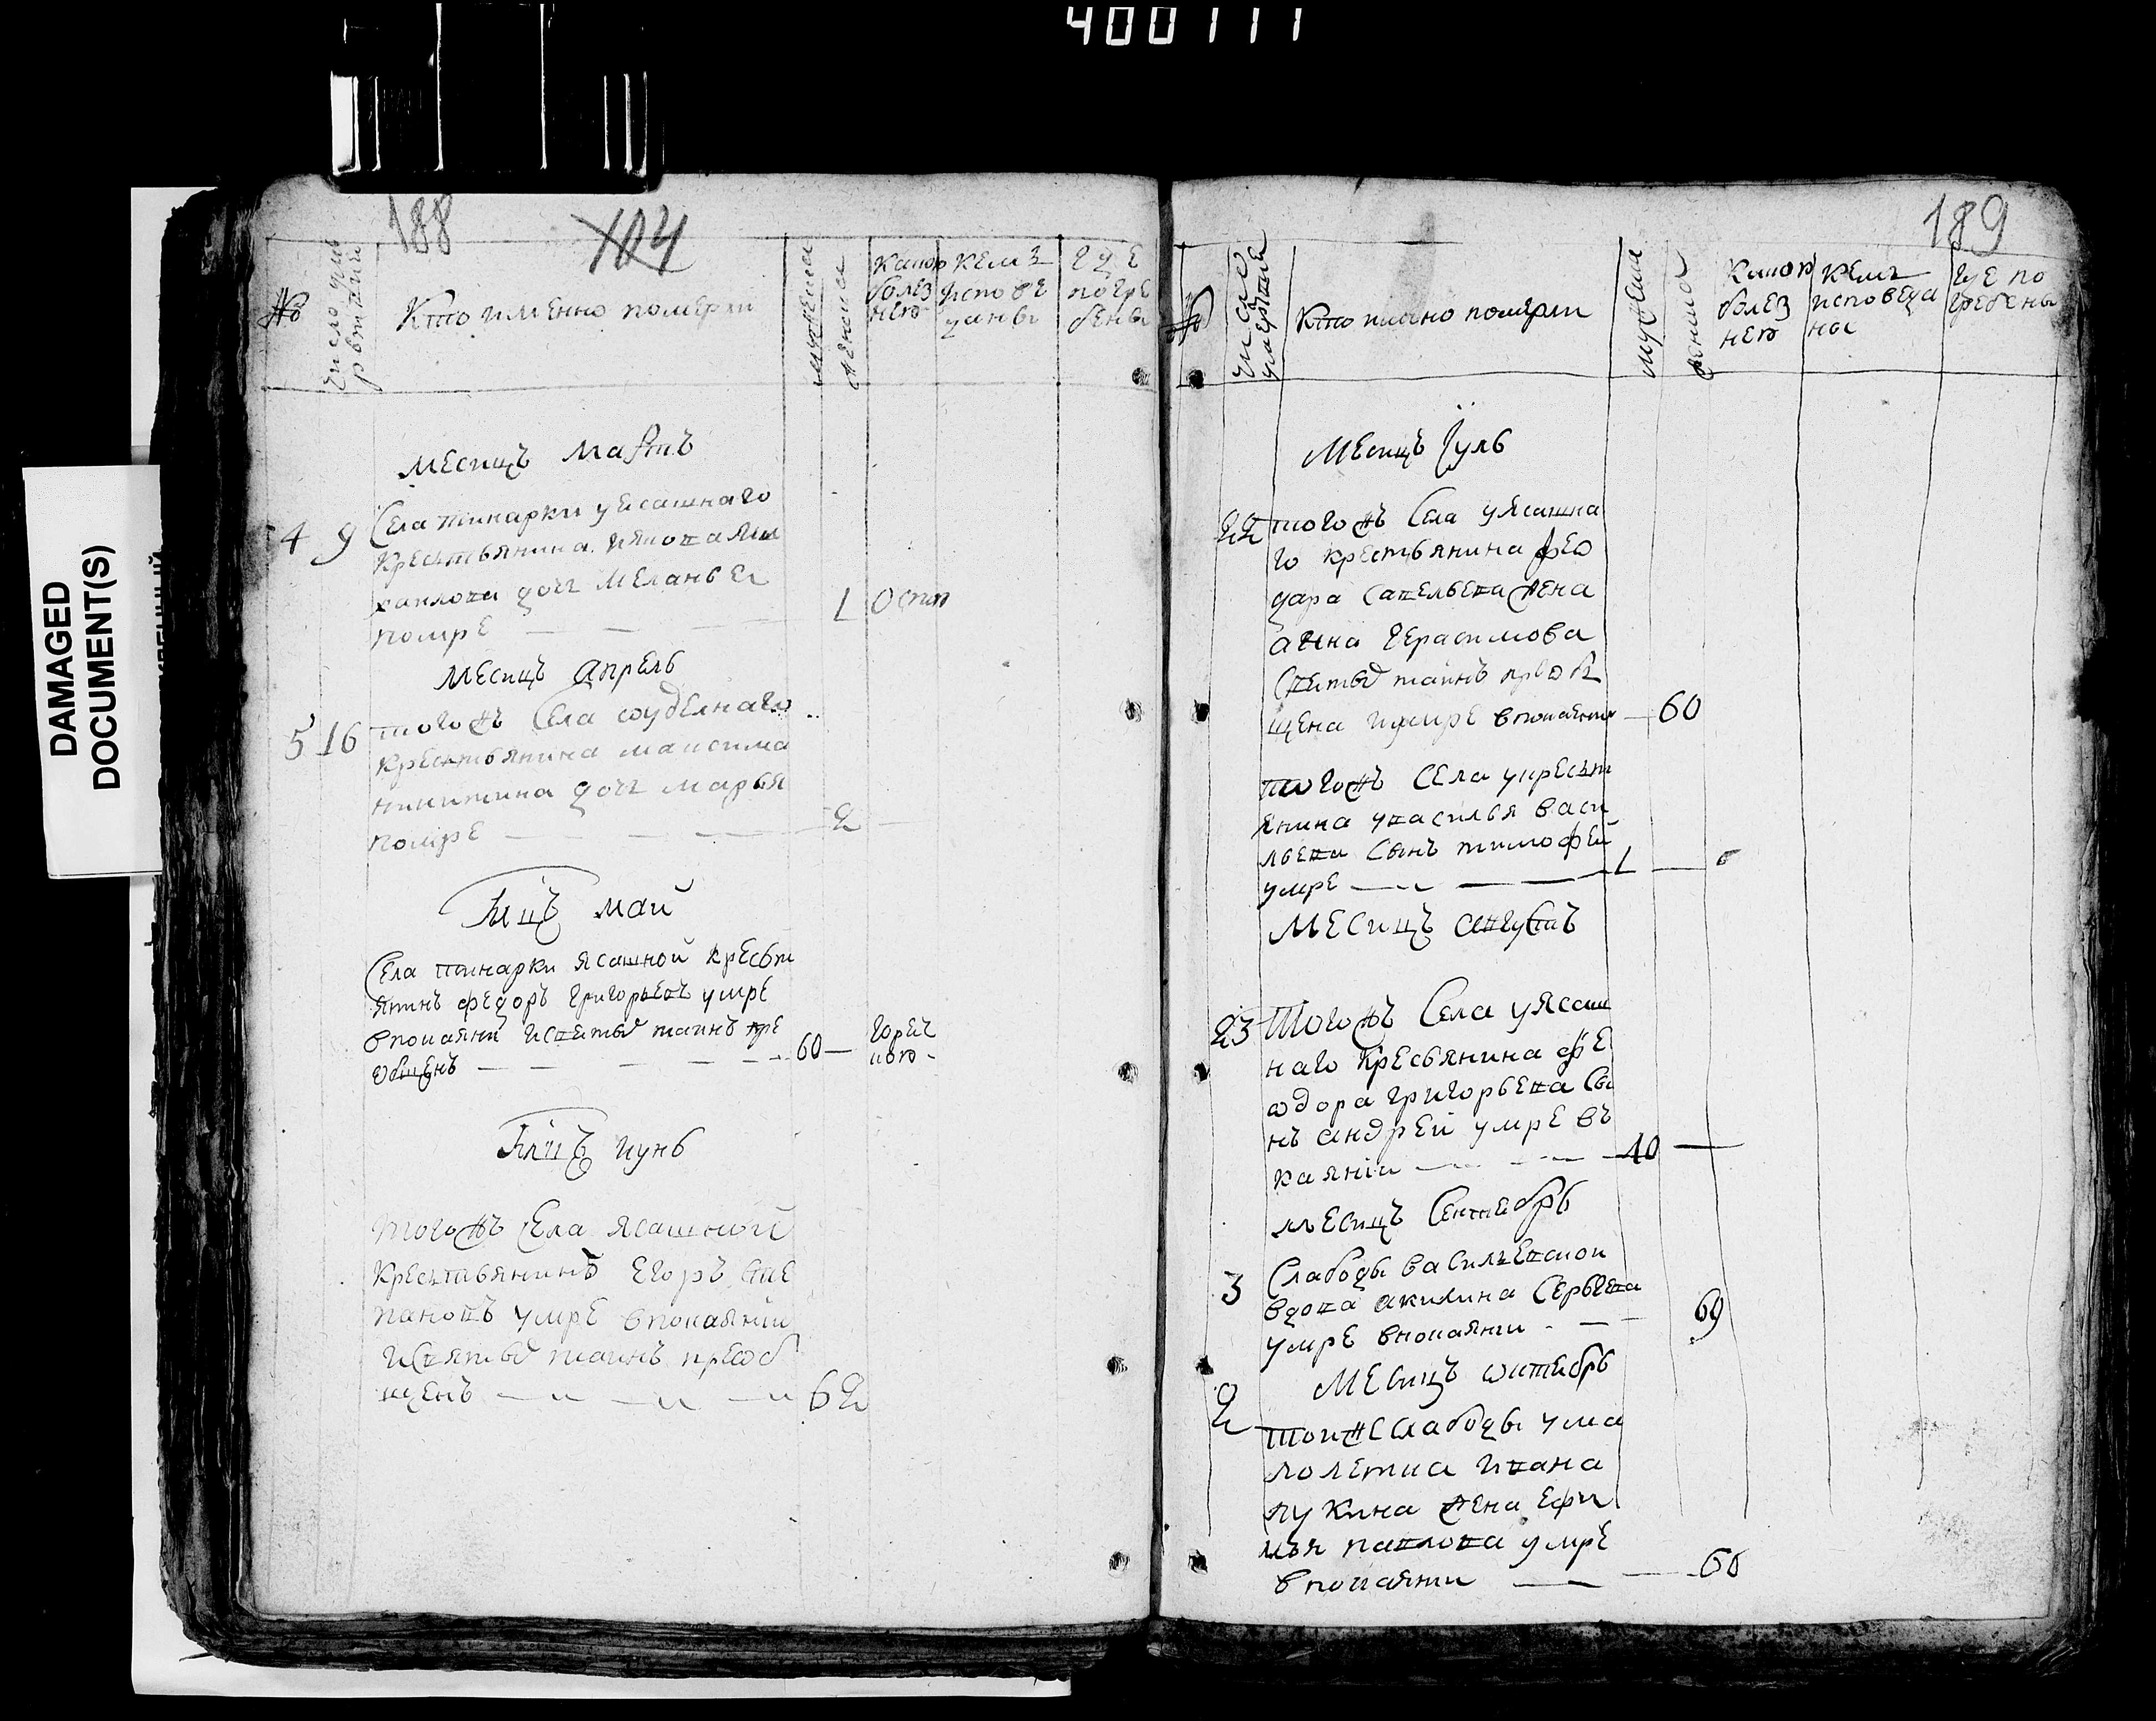 400111
DAMAGED
DOCUMENT(S)
188
104
№
Число
Кто именно померли
мужеска
женска
какою
болез
нею
кемъ
испове
даны
где
погре
бены
Месицъ Мартъ
4 9 Села тинарки уясашнаго
крестьянина якова ми
хаилова дочь Меланьеи
помре — — — 1 Оспи
Месицъ Апрель
5 16 тогожъ Села ѿуделнаго
крестьянина максима
никитина дочь марья
помре — — — 2 —
Мцъ май
Села тинарки ясашной кресьт
янинъ федоръ григорьевъ умре
впокаянии исвятыхъ таинъ пре
ѡбщенъ — — — 60 — Горяч
кою
Мцъ иунь
тогожъ Села ясашной
Крестьянинъ Егоръ Сте
пановъ умре впокаянии
исвятыхъ таинъ преѡб
щенъ — — — 62
189
№
Число
умертвие
Кто имяно померли
мужеска
женска
какою
болез
нею
кемъ
исповеда
ны
где по
гребены
Месицъ Іуль
22 тогожъ Села уясашна
го крестьянина фео
дара Савельева жена
анна Герасимова
Святыхъ таинъ приѡб
щена иумре впокаянии — 60
тогожъ Села укресьт
янина увасилья васи
льева Сынъ тимофей
умре — — — 1 —
Месицъ августъ
23 Тогожъ Села уясаш
наго Кресьянина фе
ѡдора григорьева Сы
нъ андрей умре въ
каянии — — — 40 —
Месицъ Сентебрь
3 Слабоды васильевскои
вдова акилина Сергъева
умре впокаянии — — 69
Месицъ ѡктебрь
2 тоижС слабоды ума
лолетка ивана
лукина жена Ефи
мья павлова умре
впокаянии — — 60